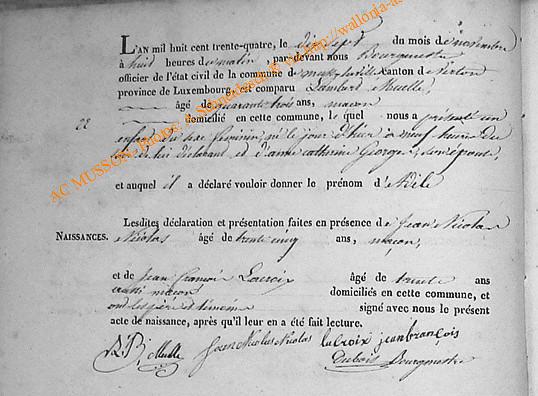 L'AN mil huit cent trente-quatre, le dix sept du mois de novembre
à huit heures du matin, par-devant nous Bourgmestre
officier de l'état civil de la commune de canton de Virton
province de Luxembourg, est comparu Lambert Muelle,
âgé de quarante trois ans, maçon
domicilié en cette commune, le quel nous a présenté un
22
enfant du sexe féminin, né le jour d'hier à neuf heures du
de lui déclarant et d'anne catherine George, son épouse,
et auquel il a déclaré vouloir donner le prénom d'Adèle
Lesdites déclaration et présentation faites en présence de Jean Nicolas
NAISSANCES. Nicolas âgé de trente cinq ans, maçon,
et de Jean françois Lacroix âgé de trente ans
aussi maçon domiciliés en cette commune, et
ont les père et témoins signé avec nous le présent
acte de naissance, après qu'il leur en a été fait lecture.
Muelle Jean Nicolas Nicolas lacroix jeanfrançois
Dubois Bourgmestre
AC MUSSON - Photos: http://wallonia-as